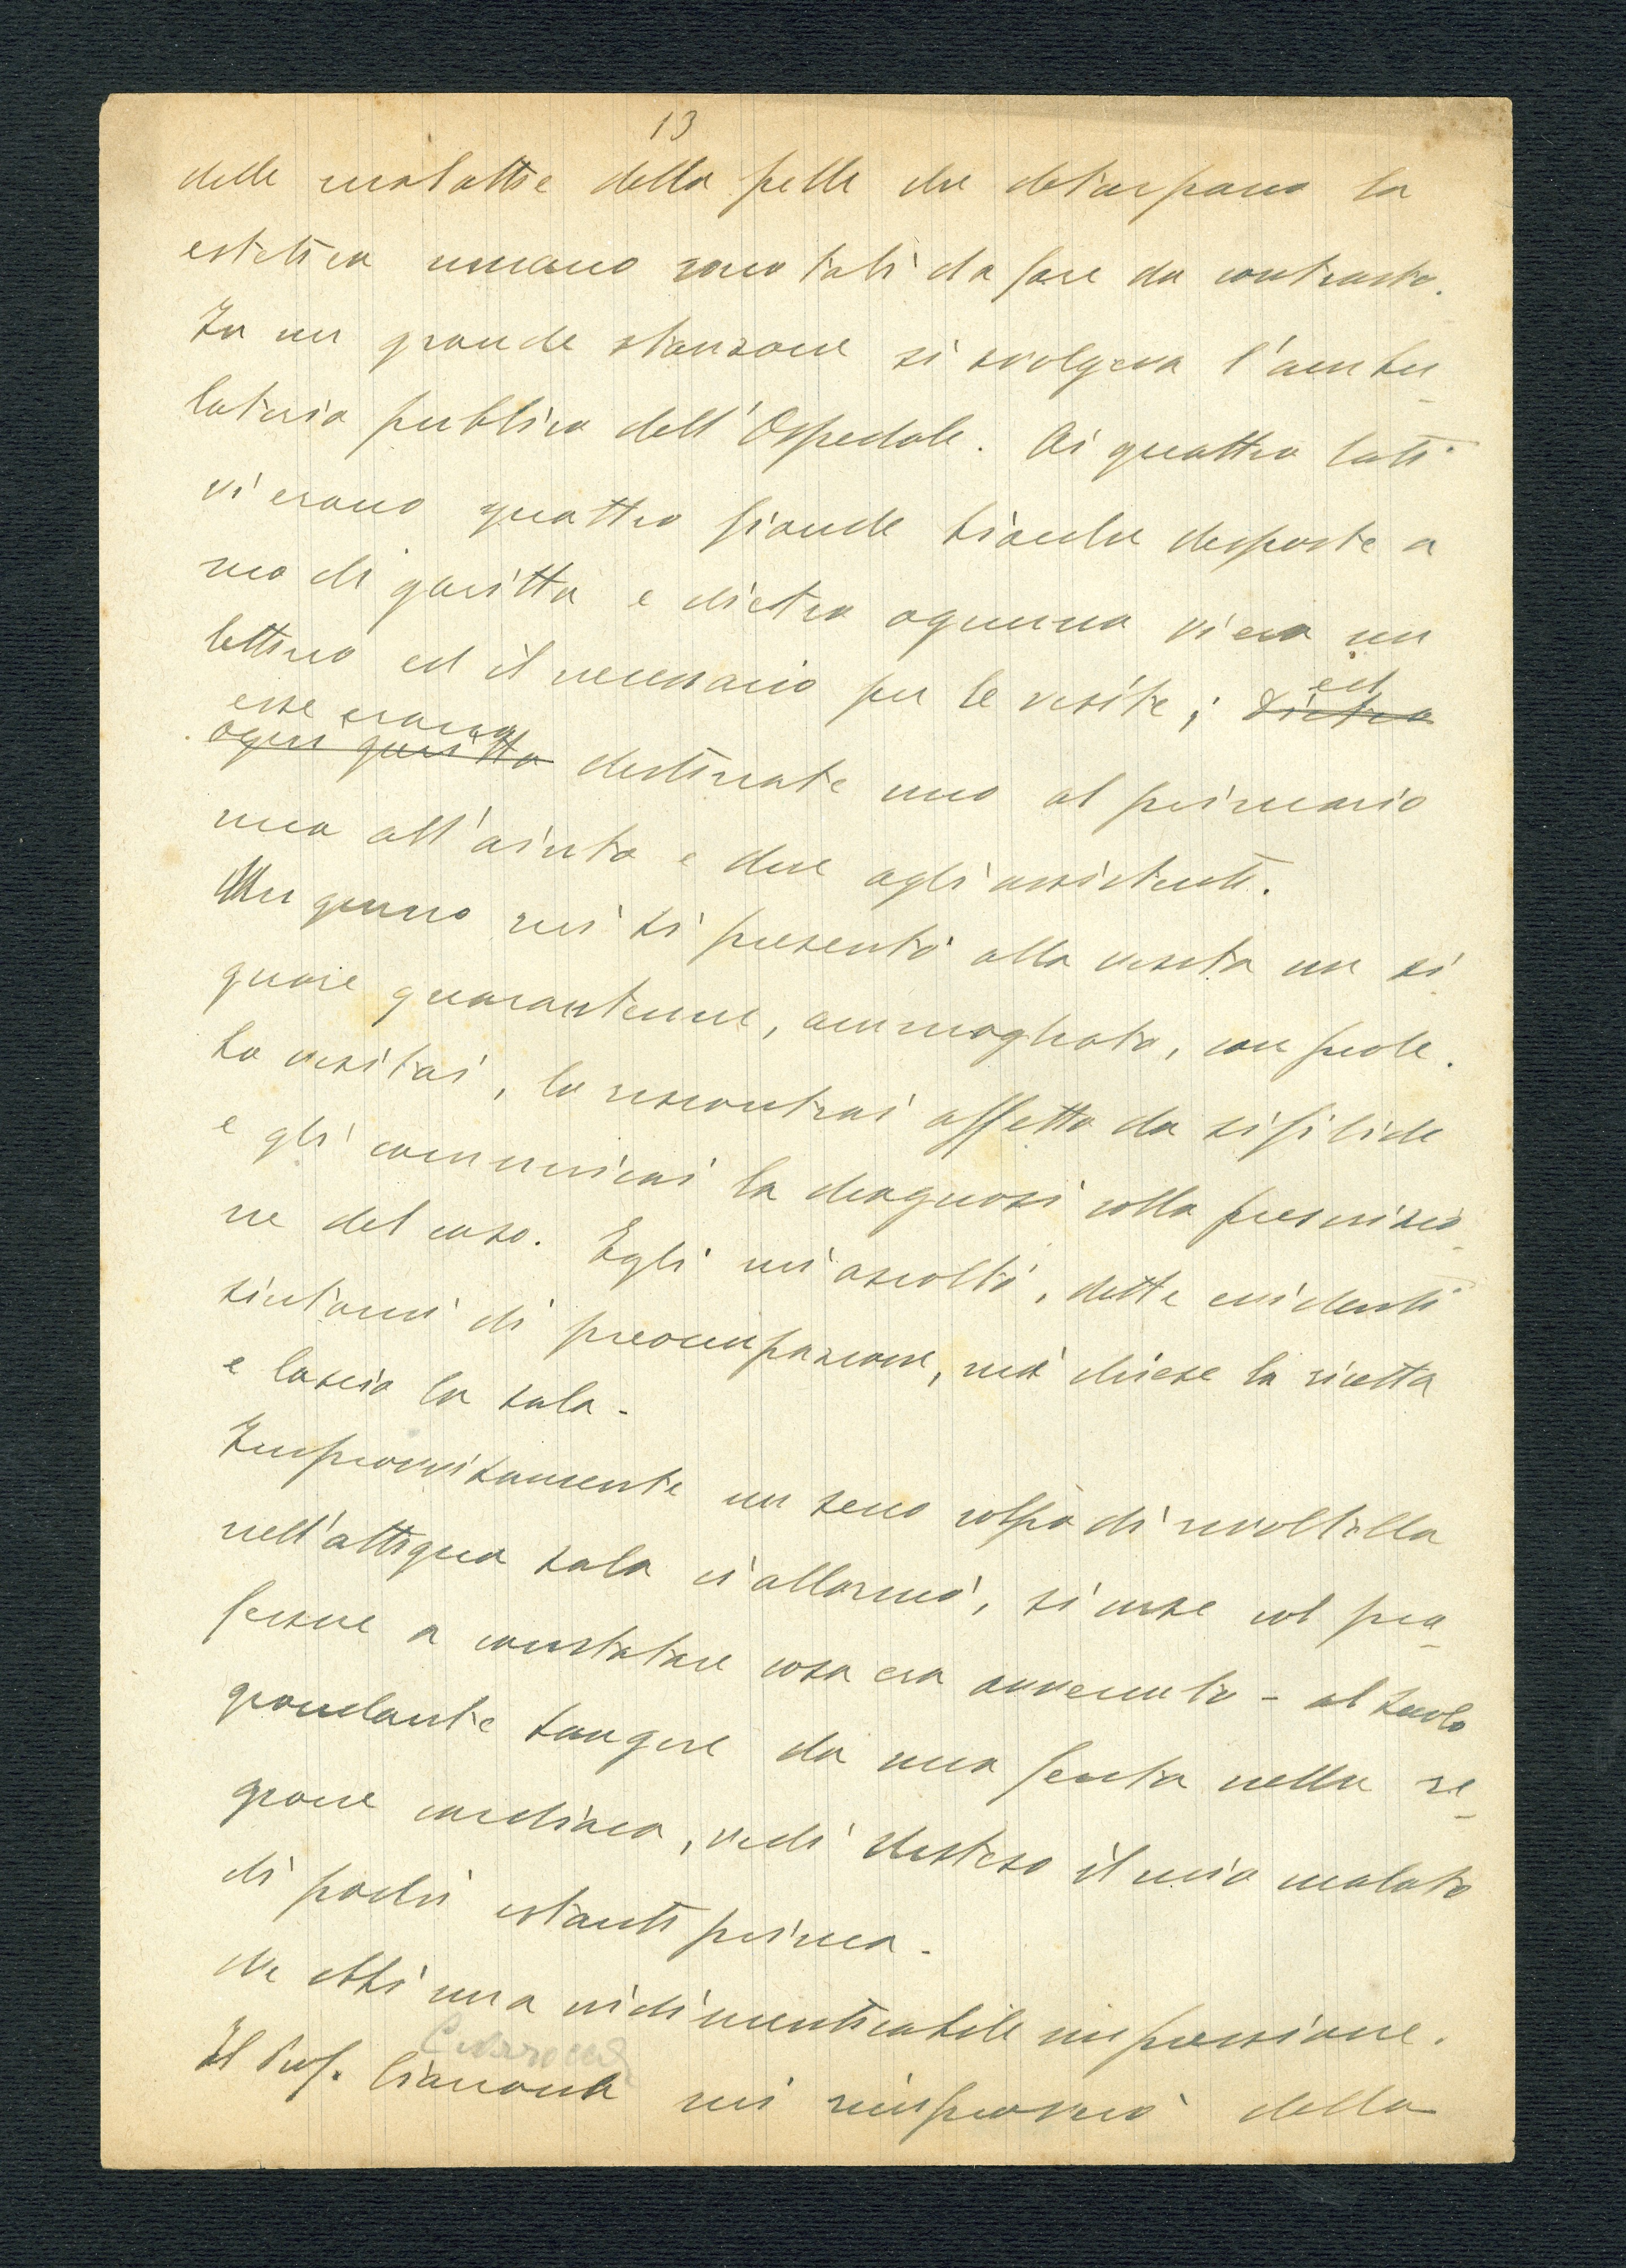 13
delle malattie della pelle che deturpano la
estetica umana sono tali da fare da contrasto.
In un grande stanzone si svolgeva l'ambu-
latorio pubblico dell'Ospedale. Ai quattro lati
vi erano quattro grande bianche disposte a
mo di garitta e dietro ognuna vi era un
lettino ed il necessario per le visite; dietro ed
ogni garitta esse erano destinate una al primario
una all'aiuto e due agli assistenti.
Un giorno mi si presentò alla visita un si-
gnore quarantenne, ammogliato, con prole.
Lo visitai, lo riscontrai affetto da sifilide
e gli comunicai la diagnosi colla prescrizio-
ne del caso. Egli mi ascoltò, dette evidenti
sintomi di preoccupazione, mi chiese la ricetta
e lasciò la sala.
Improvvisamente un secco colpo di rivoltella
nell'attigua sala ci allarmò, si corse col pro-
fessore a constatare cosa era avvenuto - al suolo
grondante sangue da una ferita nella re-
gione cardiaca, vidi disteso il mio malato
di pochi istanti prima.
Ne ebbi una indimenticabile impressione.
Il Prof. Ciarrocchi mi rimproverò della